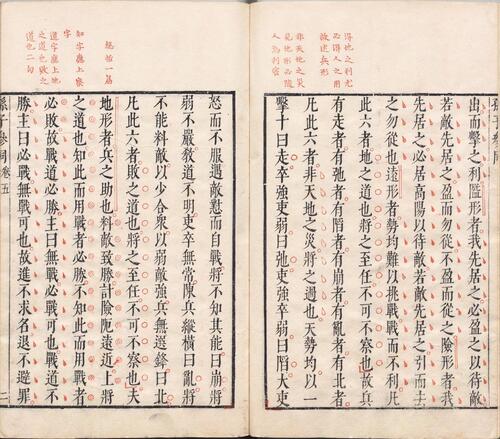 得地之利尤
必得人之用
故述兵形
非天地之災
見地形必隨
人為利害
出而擊之利隘形者我先居之必盈之以待敵
若敵先居之盈而勿從不盈而從之險形者我
先居之必居高陽以待敵若敵先居之引而去
之勿從也遠形者勢均難以挑戰戰而不利凡
此六者地之道也將之至任不可不察也故兵
有走者有弛者有陷者有崩者有亂者有北者
凡此六者非天地之災將之過也夫勢均以一
擊十曰走卒強吏弱曰弛吏強卒弱曰陷大吏
總結一篇
知字應上察
字
道字應上地
之道也敗之
道也二句
怒而不服遇敵懟而自戰將不知其能曰崩將
弱不嚴教道不明吏卒無常陳兵縱橫曰亂將
不能料敵以少合衆以弱敵強兵無選鋒曰北
凡此六者敗之道也將之至任不可不察也夫
地形者兵之助也料敵致勝計險阨遠近上將
之道也知此而用戰者必勝不知此而用戰者
必敗故戰道必勝主曰無戰必戰可也戰道不
勝主曰必戰無戰可也故進不求名退不避罪
孫子參同卷五 二